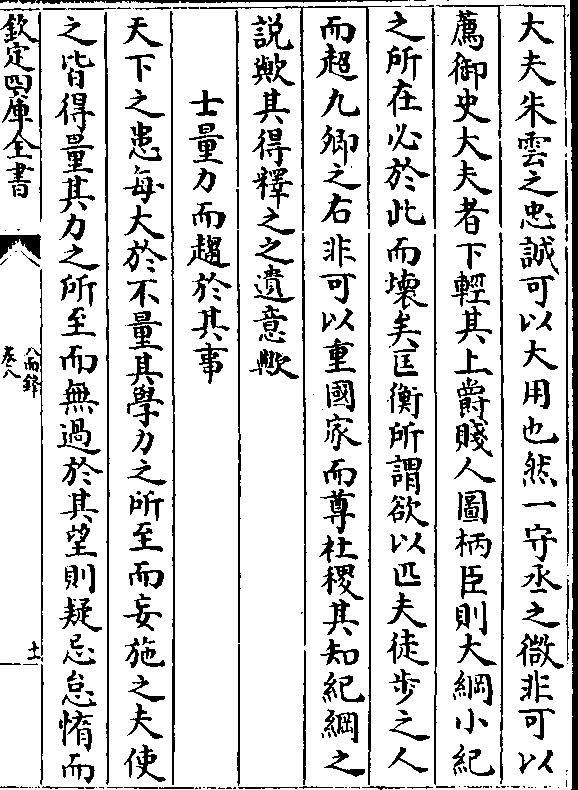 大夫朱雲之忠誠可以大用也然一守丞之微非可以
薦御史大夫者下輕其上爵賤人圖柄臣則大綱小紀
之所在必於此而壞矣匡衡所謂欲以匹夫徒步之人
而超九卿之右非可以重國家而尊社稷其知紀綱之
説歟其得釋之之遺意歟
士量力而趨於其事
天下之患每大於不量其學力之所至而妄施之夫使
之皆得量其力之所至而無過於其望則疑忌怠惰而
欽定四庫全書
八面鋒
卷八
十一